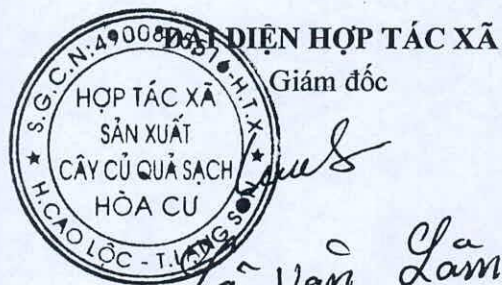 ĐẠI DIỆN HỢP TÁC XÃ
Giám đốc
HỢP TÁC XÃ
SẢN XUẤT
CÂY CỦ QUẢ SẠCH
HÒA CƯ
H.CAO LỘC - T.LẠNG SƠN
Văn Lâm